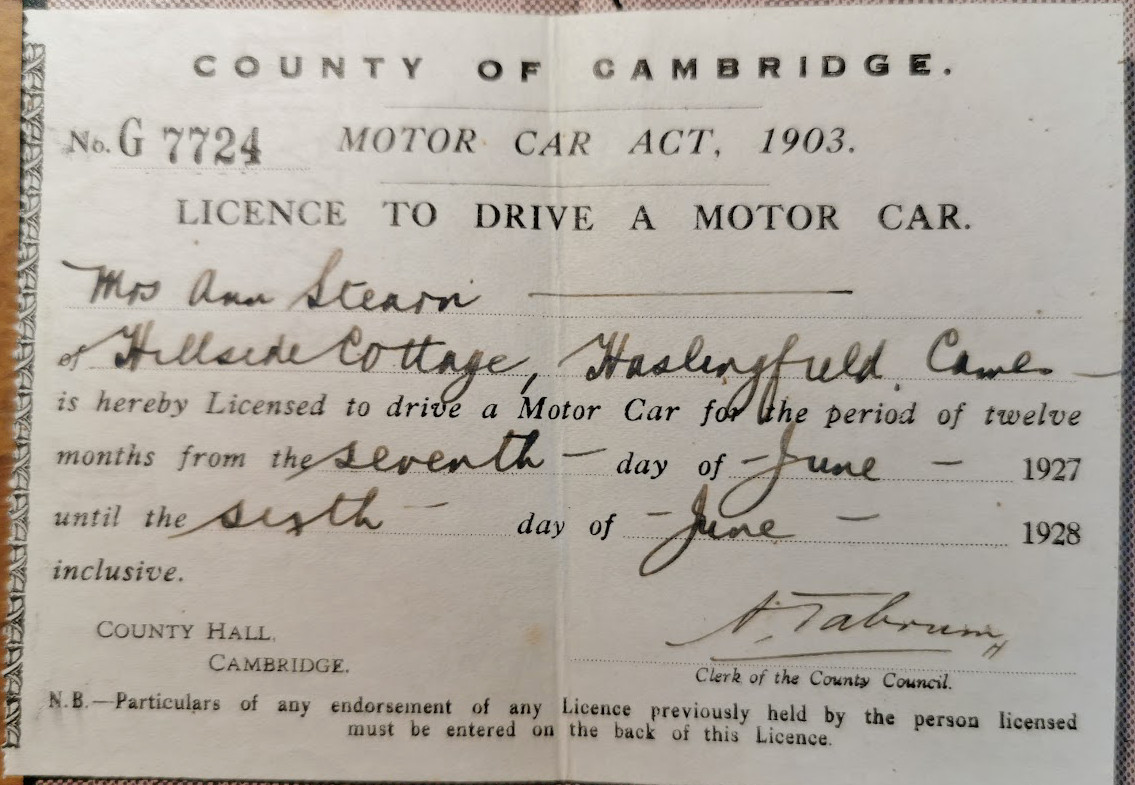 COUNTY OF CAMBRIDGE.
No. G 7724 MOTOR CAR ACT, 1903.
LICENCE TO DRIVE A MOTOR CAR.
Mrs Ann Stearn
of Hillside Cottage, Haslingfield. Cambs
is hereby Licensed to drive a Motor Car for the period of twelve
months from the seventh day of June 1927
until the sixth day of June 1928
inclusive.
COUNTY HALL,
CAMBRIDGE.
A. Tabrum,
Clerk of the County Council.
N.B.—Particulars of any endorsement of any Licence previously held by the person licensed
must be entered on the back of this Licence.